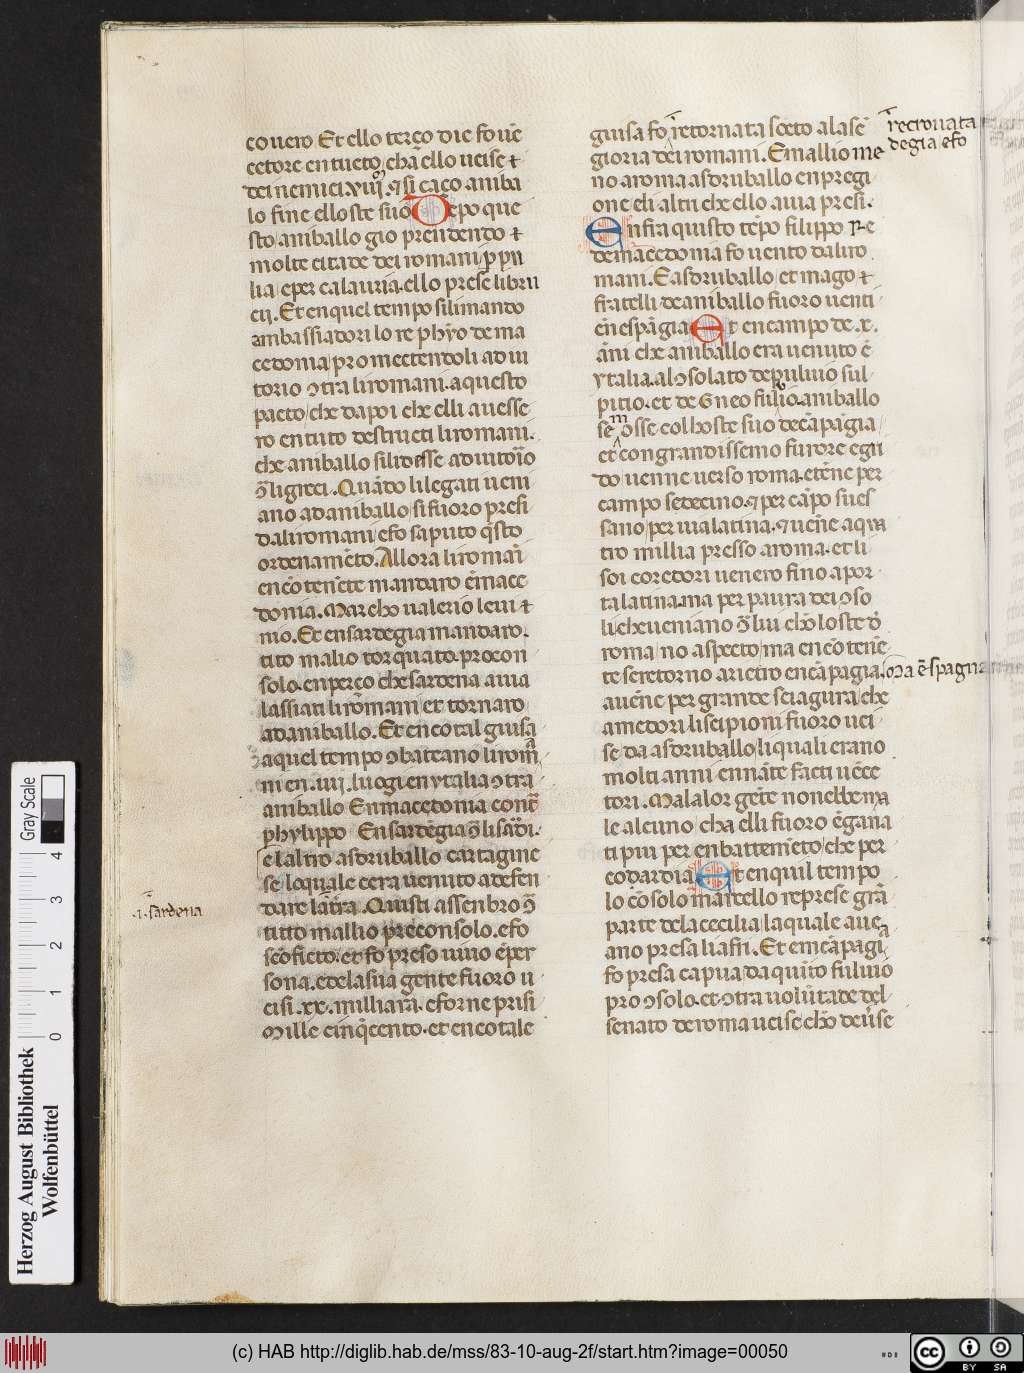 covero Et ello terço die fo vē
cetore en tucto, chā ello ucise ⁊
dei nemici xviij. ꝯ si caço aniba
lo fine ello ste suo Depo que
sto aniballo gio prendendo ⁊
molte citade dei romani p pu
lia e per calauria. ello prese librii
cij. Et en quel tempo si limando
ambassiadori lo re phyo de ma
cedonia pro mectendoli adiu
torio ꝯtra li romani. a questo
pacto che da poi che elli avesse
ro en tuto destructi li romani.
che aniballo si li desse adiutoio
ꝯ li greci. Quādo li legati ueni
ano ad aniballo si fuoro presi
da li romani e fo saputo qsto
ordenamēto. Allora li romāi
encōtenēte mandaro ē mace
donia. Marcho valerio leui ⁊
nio. Et en sardegia mandaro.
tito malio torquato. procon
solo. en perço che sardena avia
lassiati li romani et tornaro
ad aniballo. Et en cotal guisa
a quel tempo ꝯbateano li rom
ni en .iiij. luogi en ytalia ꝯtra
aniballo En macedonia cont
phylippo En sardēgia ꝯ li sardi.
e l altro asdruballo cartagine
se lo quale cera uenuto a defen
dare la tra. Quisti assenbro ꝯ
titto mallio preconsolo. e fo
scōficto. et fo preso uiuo ē per
sona. e de la sua gente fuoro u
cisi .xx. milliara. e forne prisi
Mille cinqcento. et en cotale
.i. sardena
guisa fo retornata socto a la sē
gioria dei romani. E mallio me
no a roma asdruballo en pregi
one eli altri che ello avia presi.
En fra quisto tēpo filippo Re
de macedonia fo uento da li ro
mani. E asdruballo et mago ⁊
fratelli de aniballo fuoro uenti
en espāgia Et en campo de .x.
āni che aniballo era uenuto ē
ytalia. al ꝯsolato de puluio sul
pitio. et de Gneo fuluio. aniballo
se mosse col hoste suo de cāpāgia
et con grandissemo furore egu
do uenne uerso roma. et ēne per
campo sedecino. ꝯ per cāpo sues
sano per uia latina. ꝯ uēne a qua
tro millia presso a roma. et li
soi coredori uenero fino a por
ta latina. ma per paura dei ꝯso
li che ueniano ꝯ lui cho lo ste d
roma no aspecto, ma encōtenē
te se retorno arietro en cāpagia.
avēne per grande sciagura che
amedori li scipioni fuoro uci
se da asdruballo li quali erano
molti anni ennāte facti uēce
tori. Ma la lor gēte non ebbe ma
le alcuno cha elli fuoro ēgana
ti piu per enbattemēto che per
codardia Et en quil tempo
lo cōsolo marcello represe grā
parte de la cecilia la quale ave
ano presa li afri. Et en cāpagi
fo presa capua da quito fuluio
pro ꝯsolo. et ꝯtra uolūtade del
senato de roma ucise cho deuse
recrouata
degia e fo
Ma ē spagna
Herzog August Bibliothek
Wolfenbüttel
0 1 2 3 4
Gray Scale
(c) HAB http://diglib.hab.de/mss/83-10-aug-2f/start.htm?image=00050
cc BY SA